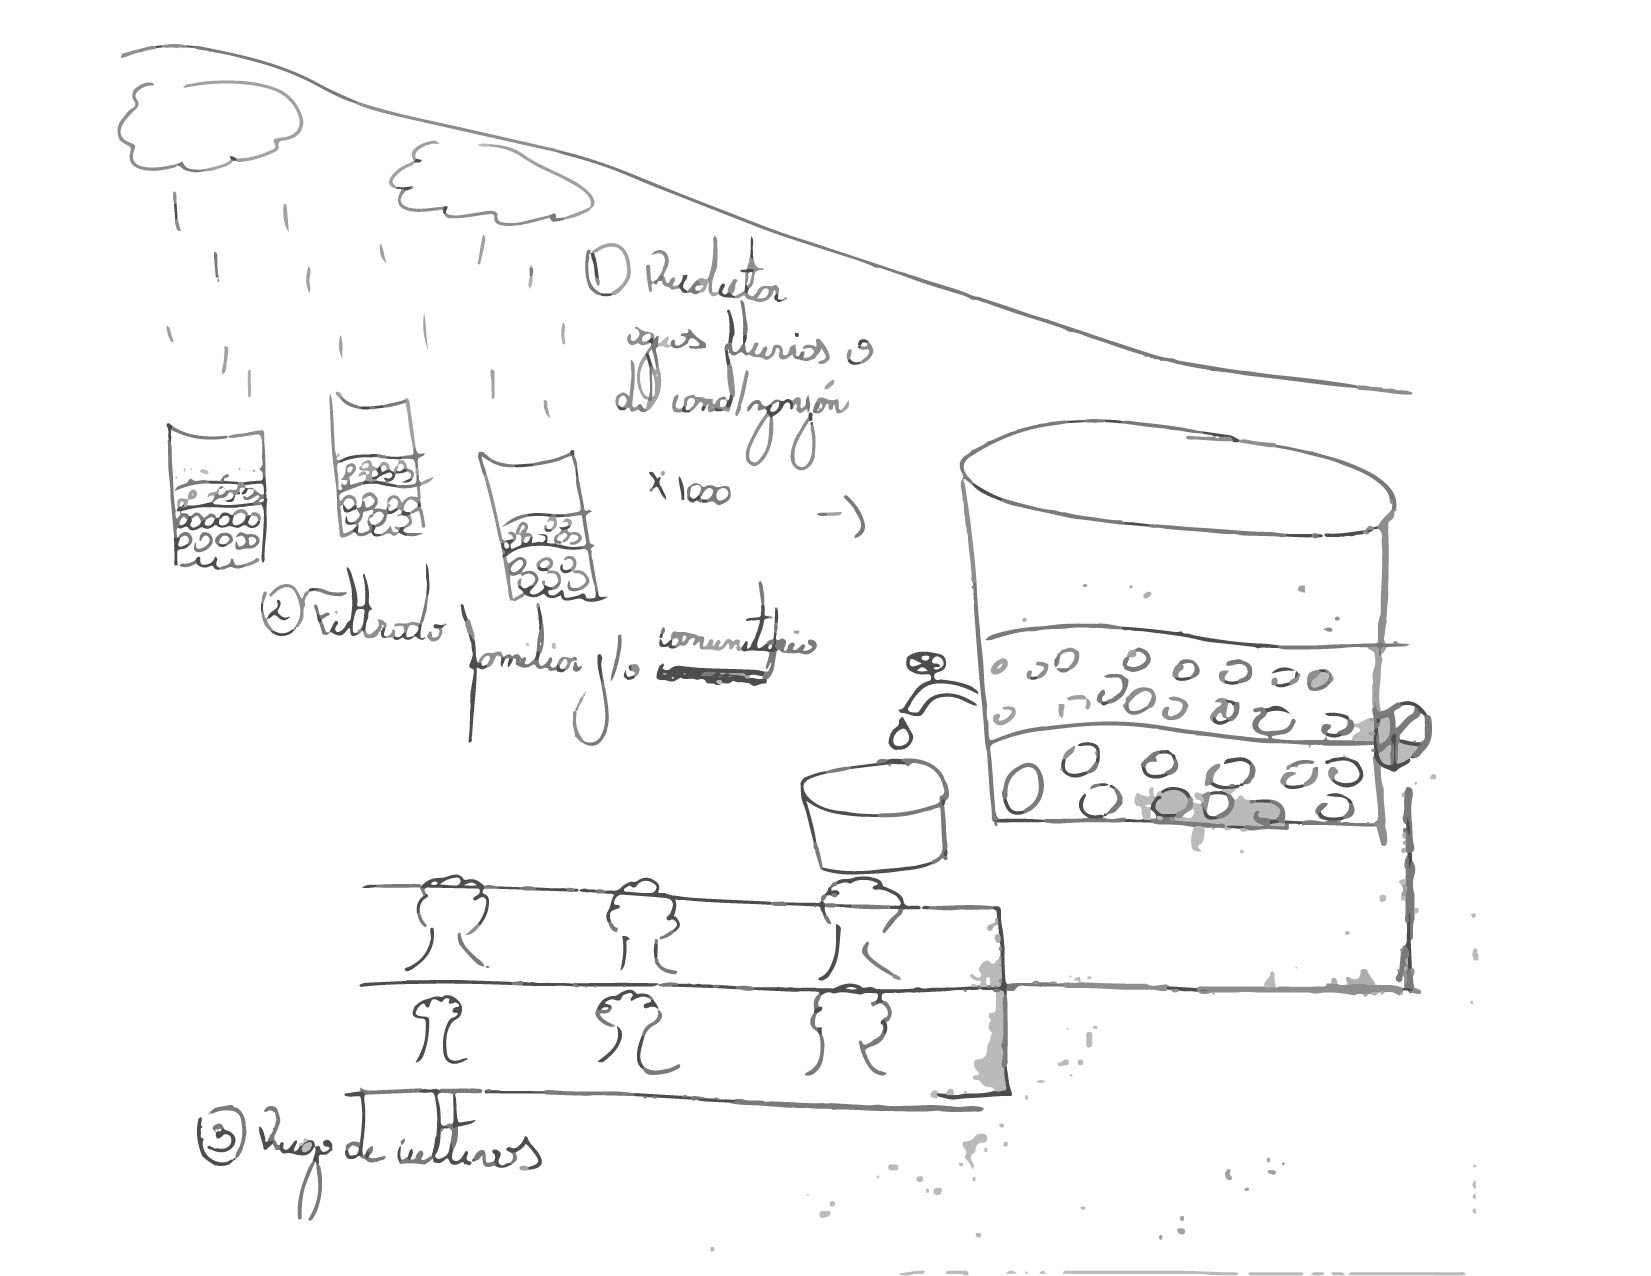 ① Recolectar
aguas lluvias o
del canal/zanjón
x 1000
② Filtrado
familiar y/o comunitario
③ Riego de cultivos